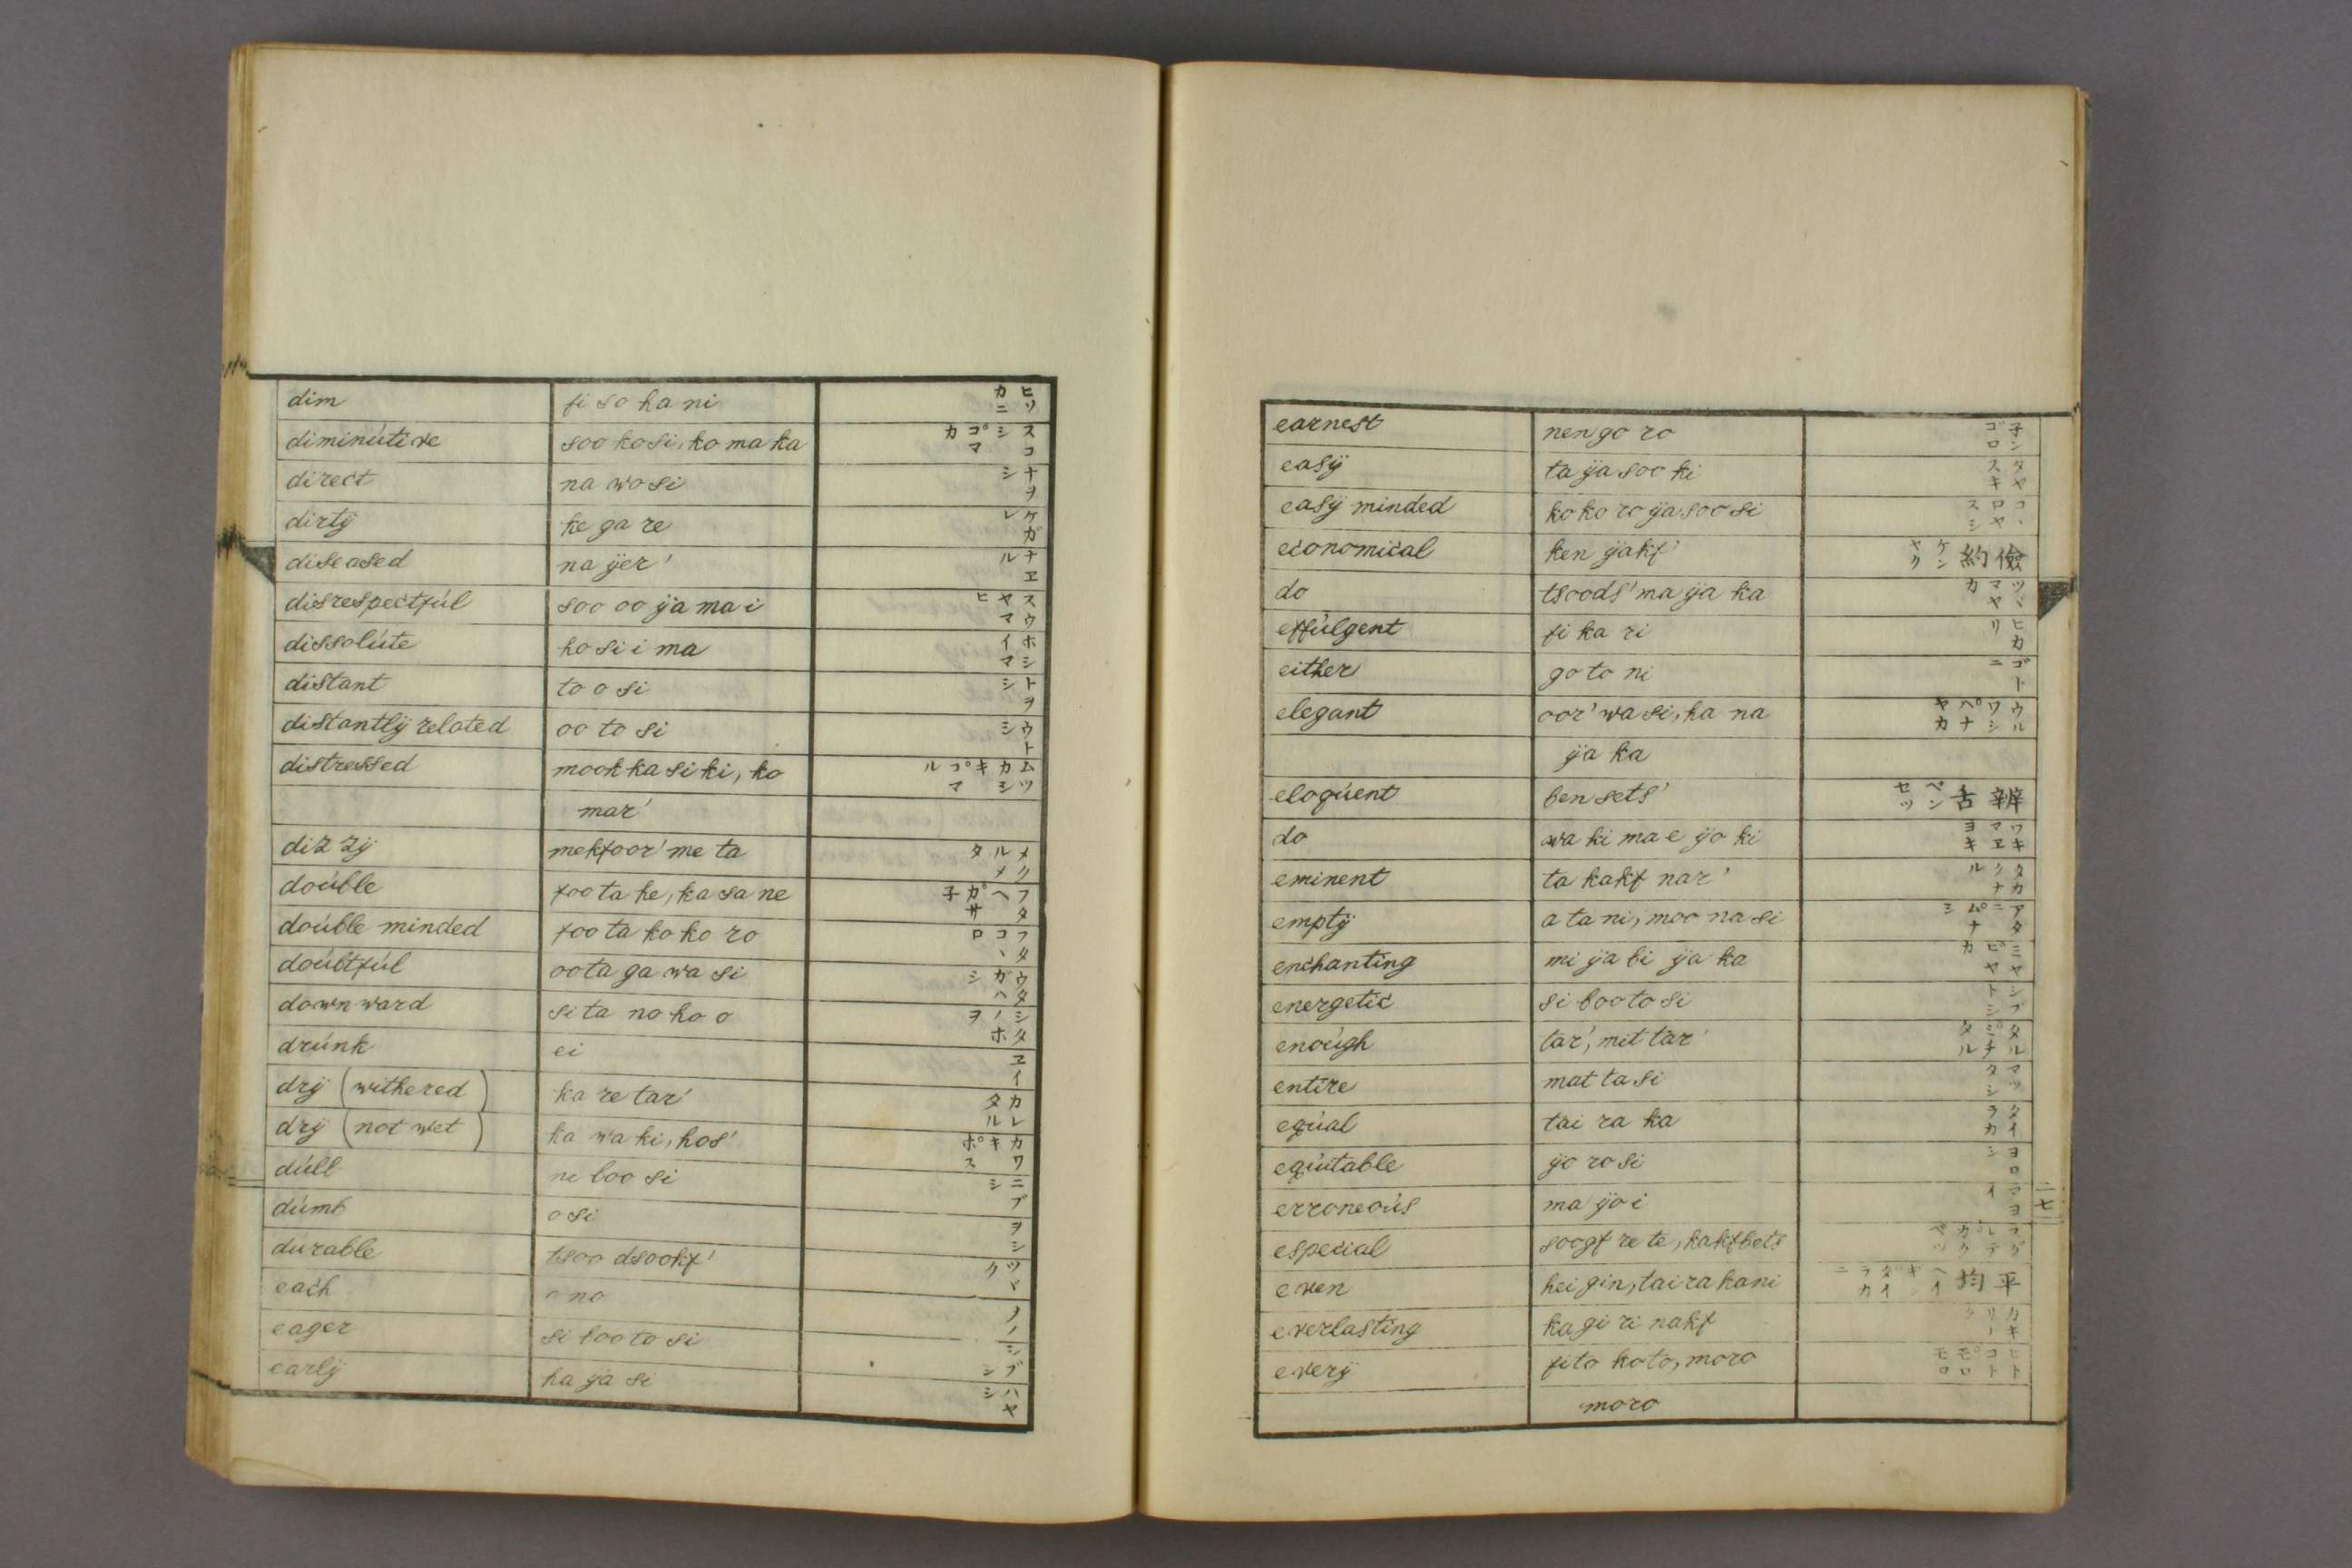 dim fi so ka ni ヒソカニ
diminútive soo kosi, ko ma ka スコシコ゜マカ
direct na wo si ナヲシ
dirtÿ ke ga re ケガレ
diseased na ÿer' ナヱル
disrespectfúl soo oo ÿa ma i スウヤマヒ
dissolúte ho si i ma ホシイマ
distant to o si トヲシ
distantlÿ related oo to si ウトシ
distressed mook ka si ki, ko ムツカシキコ゜マル
mar'
dizzÿ mekfoor' me ta メクルメタ
doúble foo ta he, ka sa ne フタヘカ゜サ子
doúble minded foo ta ko ko ro フタコヽロ
doúbtfúl oo ta ga wa si ウタガハシ
downward si ta no ho o シタノホヲ
drúnk ei ヱイ
drÿ (withered) ka re tar' カレタル
drÿ (not wet) ka wa ki, hos' カワキホ゜ス
dúll ni boo si ニブシ
dúmb o si ヲシ
dúrable tsoo dsookf' ツヾク
each o no ノノ
eager si boo to si シブシ
earlÿ ha ÿa si ハヤシ
earnest nen go ro 子ンゴロ
easÿ ta ÿa soo ki タヤスキ
easÿ minded ko ko ro ÿa soo si コヽロヤスシ
economical ken ÿakf' 儉約ケンヤク
do tsoods' ma ÿa ka ツヾマヤカ
effúlgent fi ka ri ヒカリ
either go to ni ゴトニ
elegant oor' wa si, ha na ウルワシハ゜ナヤカ
ÿa ka
eloqúent ben sets' 辨舌ベンセツ
do wa ki ma e ÿo ki ワキマヱヨキ
eminent ta kakf nar' タカクナル
emptÿ a ta ni, moo na si アタニム゜ナシ
enchanting mi ÿa bi ÿa ka ミヤビヤカ
energetic si boo to si シブトシ
enoúgh tar', mit tar' タルミ゜チタル
entire mat ta si マツタシ
eqúal tai ra ka タイラカ
eqúitable ÿo ro si ヨロシ
erroneoús ma ÿo i マヨイ
especial soogf re te, kakfbets スグレテカ゜クベツ
even hei gin, tai ra ka ni 平均ヘイキンタ゜イラカニ
everlasting ka gi ri nakf カキリ
everÿ fito koto, moro ヒトコトモ゜ロモロ
moro
二七